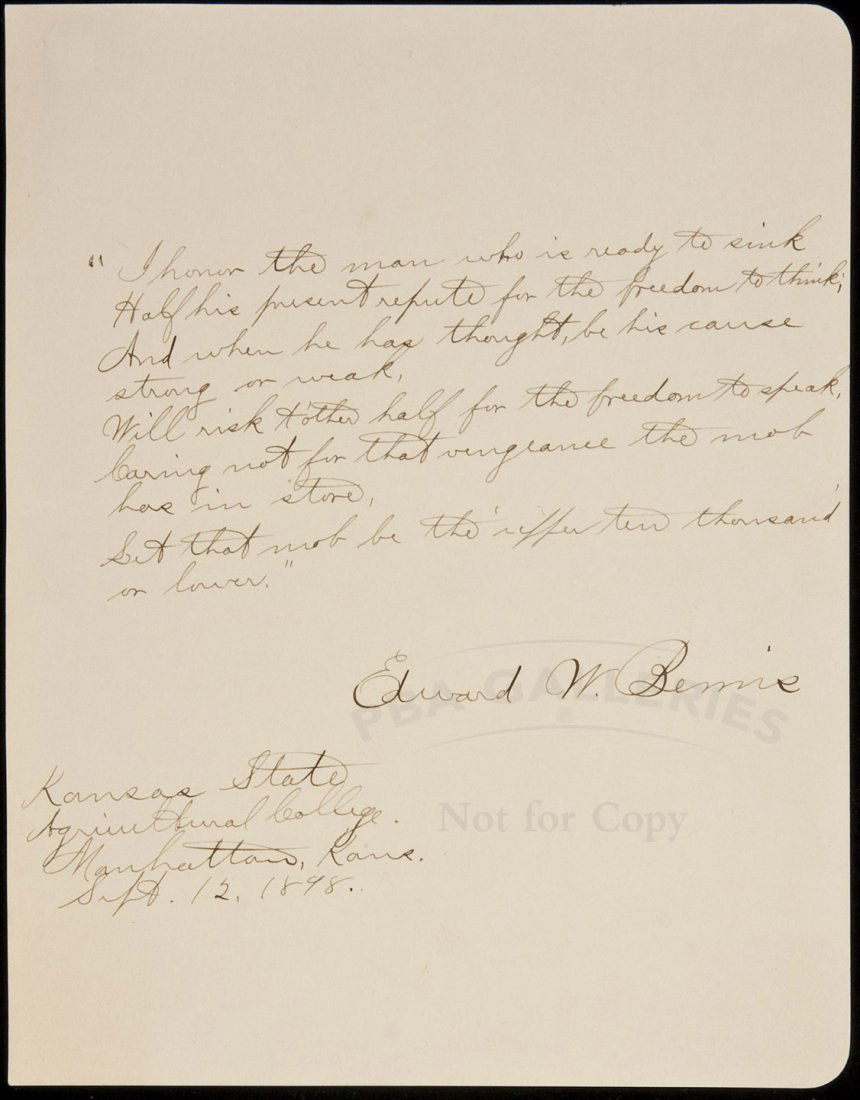 " I honor the man who is ready to sink
Half his present repute for the freedom to think;
And when he has thought, be his cause
strong or weak,
Will risk t'other half for the freedom to speak,
Caring not for that vengeance the mob
has in store,
Let that mob be the 'upper ten thousand'
or lower."
Edward W. Bemis
PBA GALLERIES
Kansas State
Agricultural College.
Not for Copy
Manhattan, Kans.
Sept. 12, 1898.